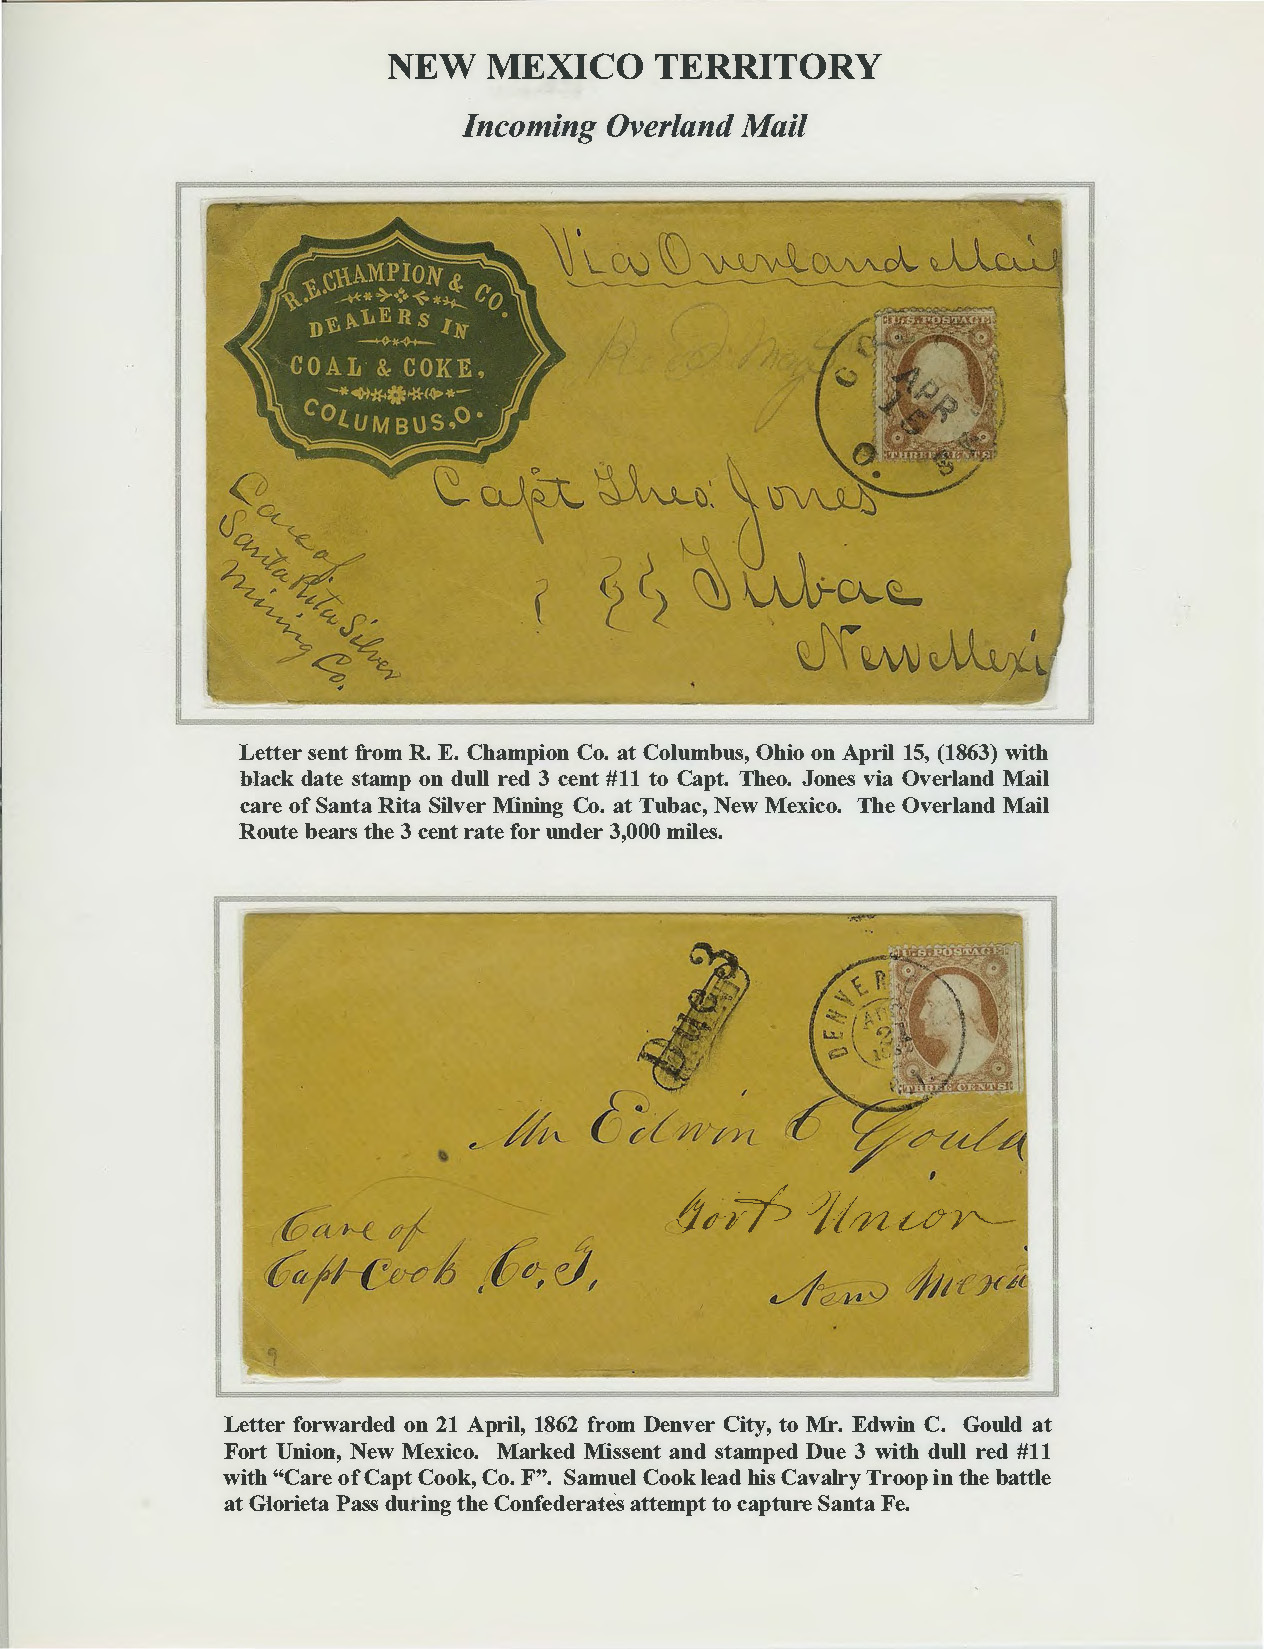 NEW MEXICO TERRITORY
Incoming Overland Mail
Via Overland Mail
R.E.CHAMPION & CO.
DEALERS IN
COAL & COKE,
COLUMBUS,O.
U.S. POSTAGE
APR
15
O.
THREE CENTS
Capt Theo. Jones
Tubac
New Mexi
Care of
Santa Rita Silver
Mining Co.
Letter sent from R. E. Champion Co. at Columbus, Ohio on April 15, (1863) with
black date stamp on dull red 3 cent #11 to Capt. Theo. Jones via Overland Mail
care of Santa Rita Silver Mining Co. at Tubac, New Mexico. The Overland Mail
Route bears the 3 cent rate for under 3,000 miles.
Due 3
DENVER
U.S. POSTAGE
THREE CENTS
Mr Edwin C Gould
Fort Union
New Mexico
Care of
Capt Cook Co. F,
9
Letter forwarded on 21 April, 1862 from Denver City, to Mr. Edwin C. Gould at
Fort Union, New Mexico. Marked Missent and stamped Due 3 with dull red #11
with “Care of Capt Cook, Co. F”. Samuel Cook lead his Cavalry Troop in the battle
at Glorieta Pass during the Confederates attempt to capture Santa Fe.